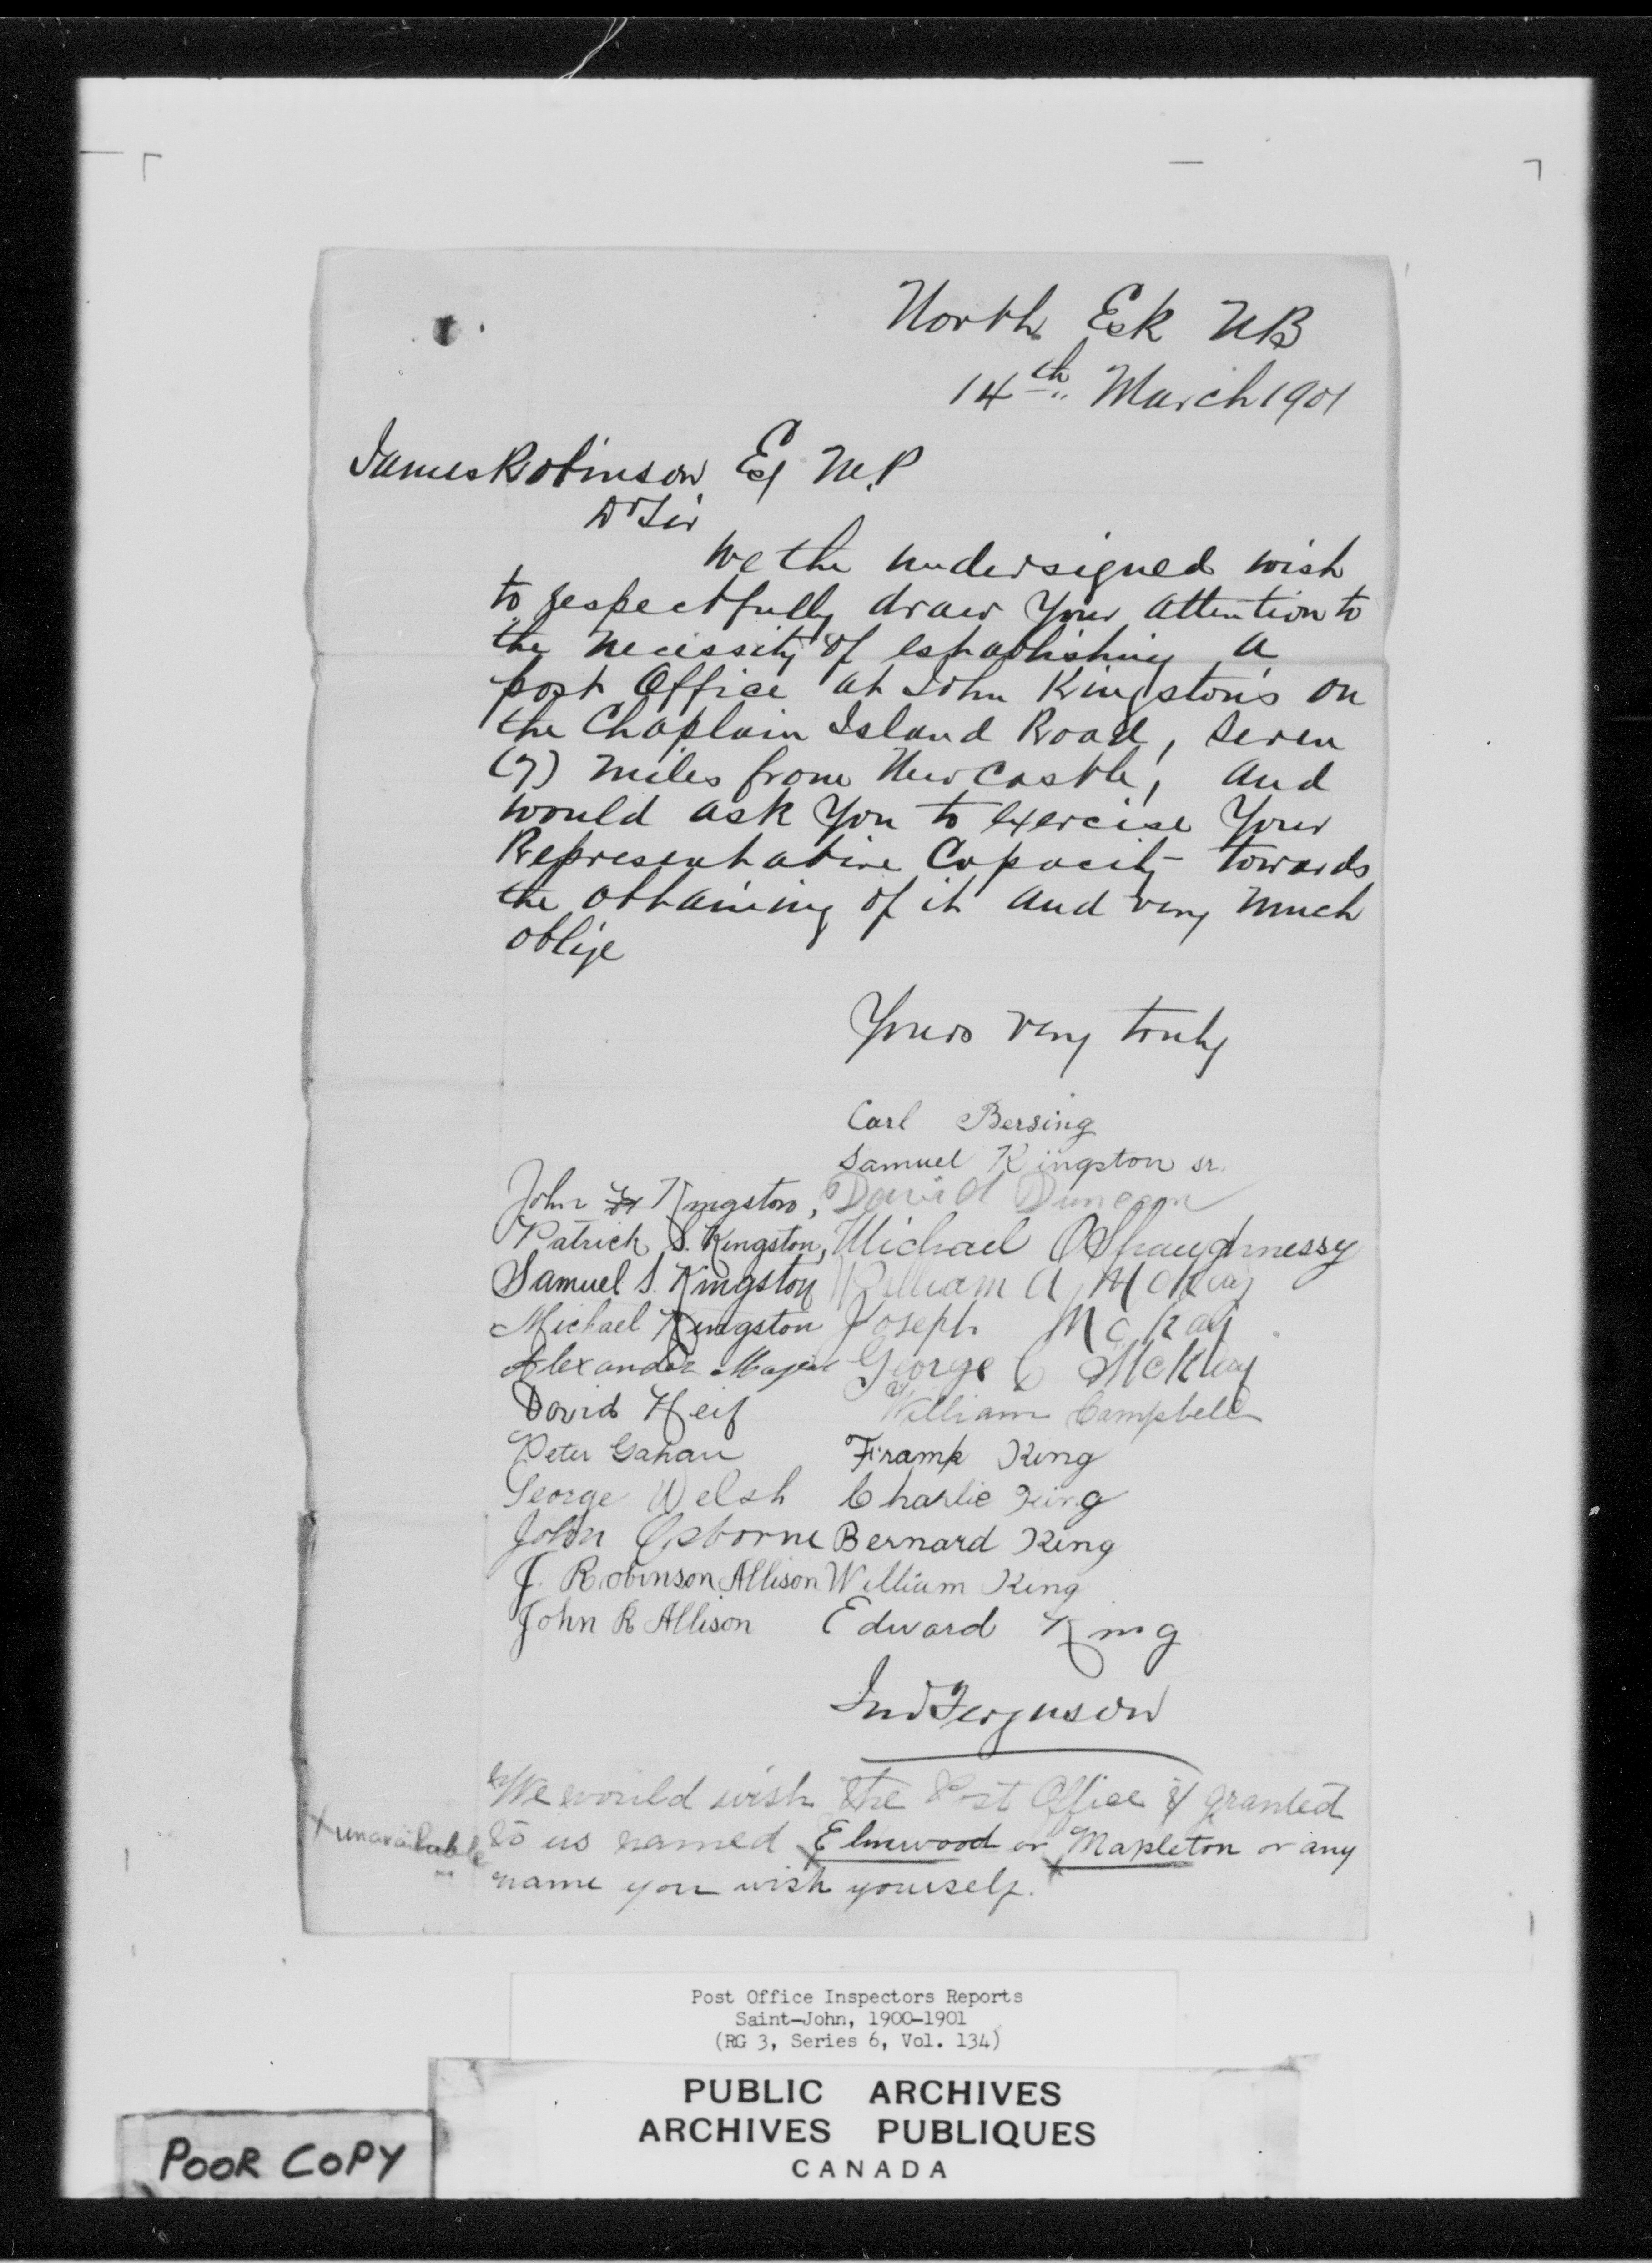 North Esk NB
14th March 1901
James Robinson Esq M.P
Dr Sir
We the undersigned wish
to respectfully draw your attention to
the necessity of establishing a
post Office at John Kingston's on
the Chaplain Island Road, seven
(7) miles from Newcastle, and
would ask you to exercise your
Representative Capacity towards
the obtaining of it and very much
oblige
Yours very truly
Carl Bersing
Samuel Kingston sr.
John Kingston, David Duncan
Patrick S. Kingston, Michael OShaughnessy
Samuel S. Kingston William A McKay
Michael Kingston Joseph McKay
Alexander George C McKay
David William Campbell
Peter Gahan Frank King
George Welsh Charlie King
John Osborne Bernard King
J. Robinson Allison William King
John R Allison Edward King
Jno Ferguson
We would wish the Post Office if granted
x unavailable to us named x Elmwood or x Mapleton or any
name you wish yourself.
Post Office Inspectors Reports
Saint-John, 1900-1901
(RG 3, Series 6, Vol. 134)
PUBLIC ARCHIVES
ARCHIVES PUBLIQUES
CANADA
POOR COPY